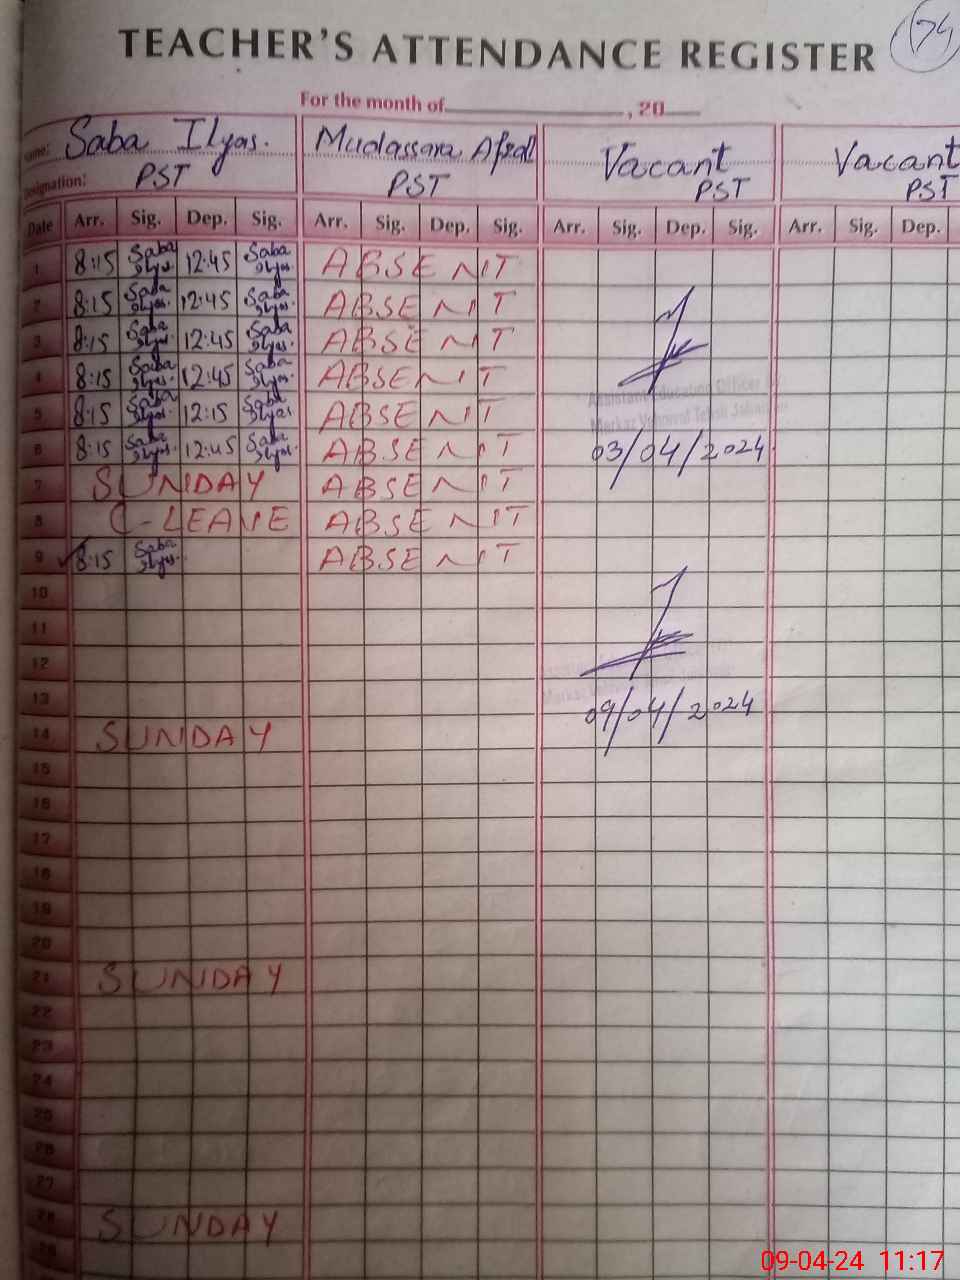 174
TEACHER'S ATTENDANCE REGISTER
For the month of , 20
Name: Saba Ilyas. Mudassara Afzal Vacant Vacant
Designation: PST PST PST PST
Date Arr. Sig. Dep. Sig. Arr. Sig. Dep. Sig. Arr. Sig. Dep. Sig. Arr. Sig. Dep.
1 8:15 Saba Ilyas. 12:45 Saba Ilyas. ABSENT
2 8:15 Saba Ilyas. 12:45 Saba Ilyas. ABSENT
3 8:15 Saba Ilyas. 12:45 Saba Ilyas. ABSENT
4 8:15 Saba Ilyas. 12:45 Saba Ilyas. ABSENT
Assistant Education Officer
5 8:15 Saba Ilyas. 12:15 Saba Ilyas ABSENT
Markaz Tehsil
6 8:15 Saba Ilyas. 12:45 Saba Ilyas. ABSENT 03/04/2024
7 SUNDAY ABSENT
8 C-LEAVE ABSENT
9 8:15 Saba Ilyas. ABSENT
10
11
12
Markaz
13 09/04/2024
14 SUNDAY
15
16
17
18
19
20
21 SUNDAY
22
23
24
25
26
27
28 SUNDAY
29
09-04-24 11:17